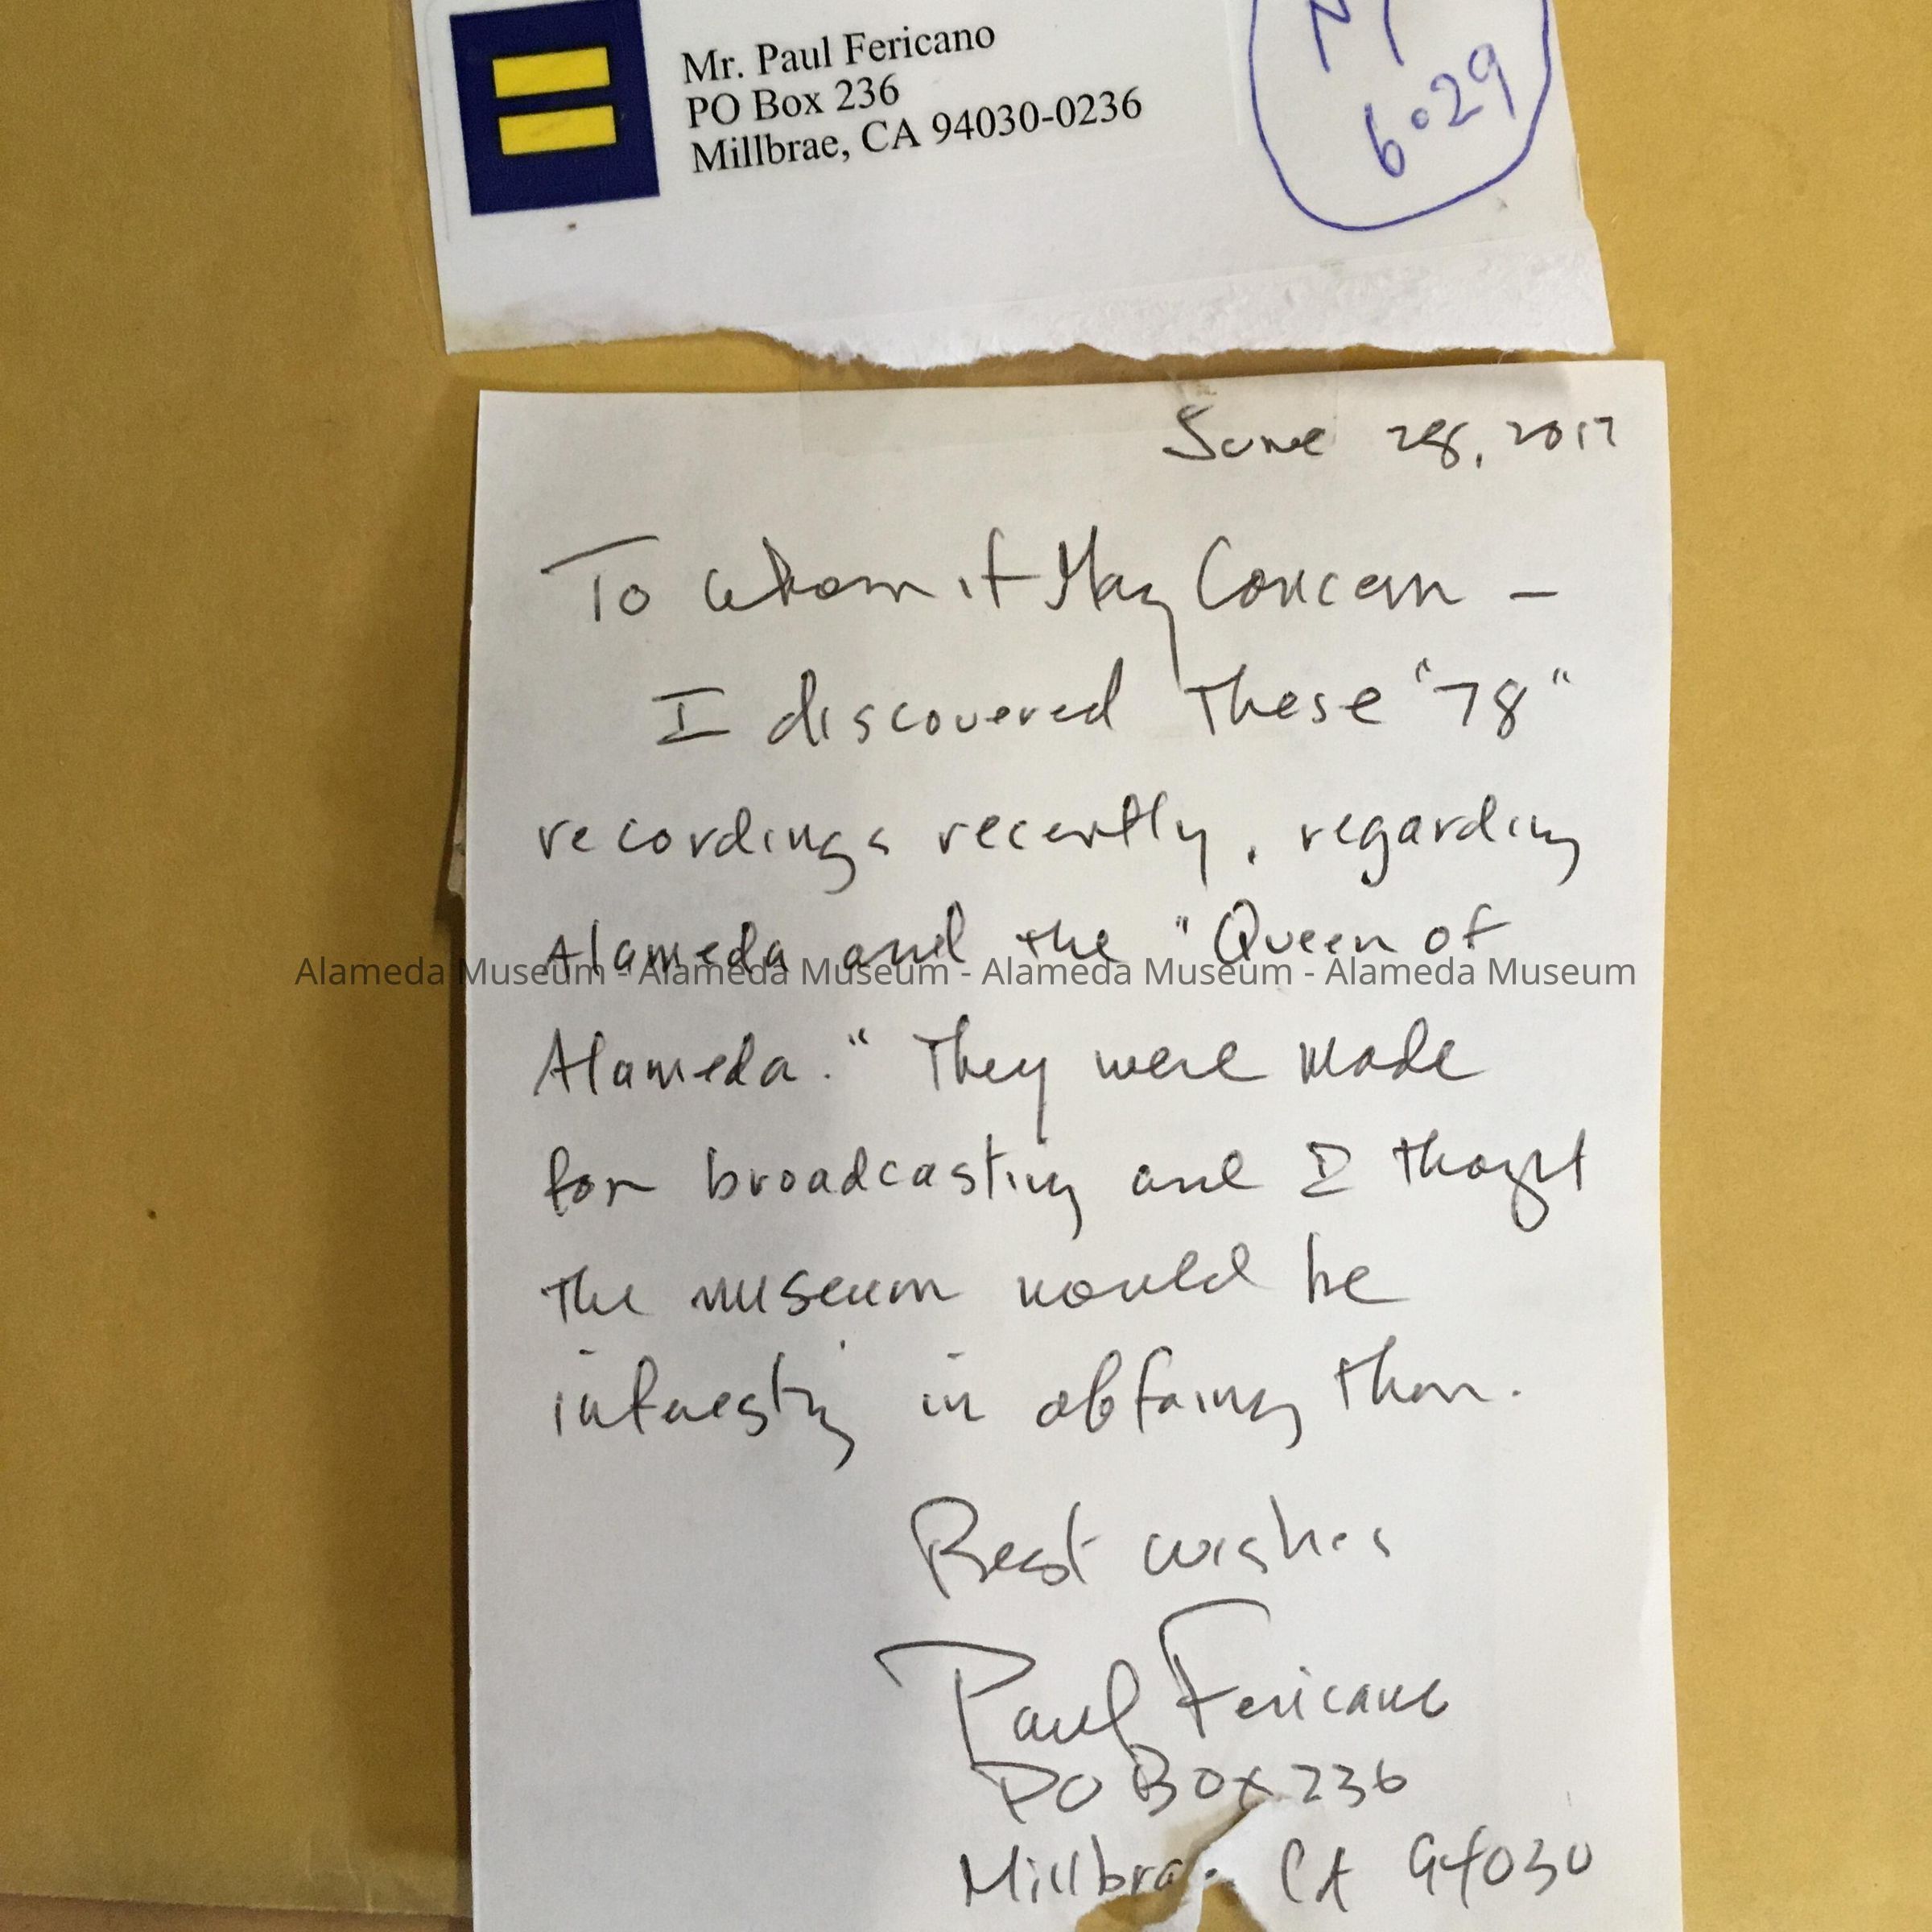 Mr. Paul Fericano
PO Box 236
Millbrae, CA 94030-0236
6.29
June 28, 2017
To Whom it May Concern –
I discovered these "78"
recordings recently, regarding
Alameda and the "Queen of
Alameda Museum - Alameda Museum - Alameda Museum - Alameda Museum
Alameda." They were made
for broadcasting and I thought
the museum would be
interesting in obtaining them.
Best wishes
Paul Fericano
PO Box 236
Millbrae CA 94030